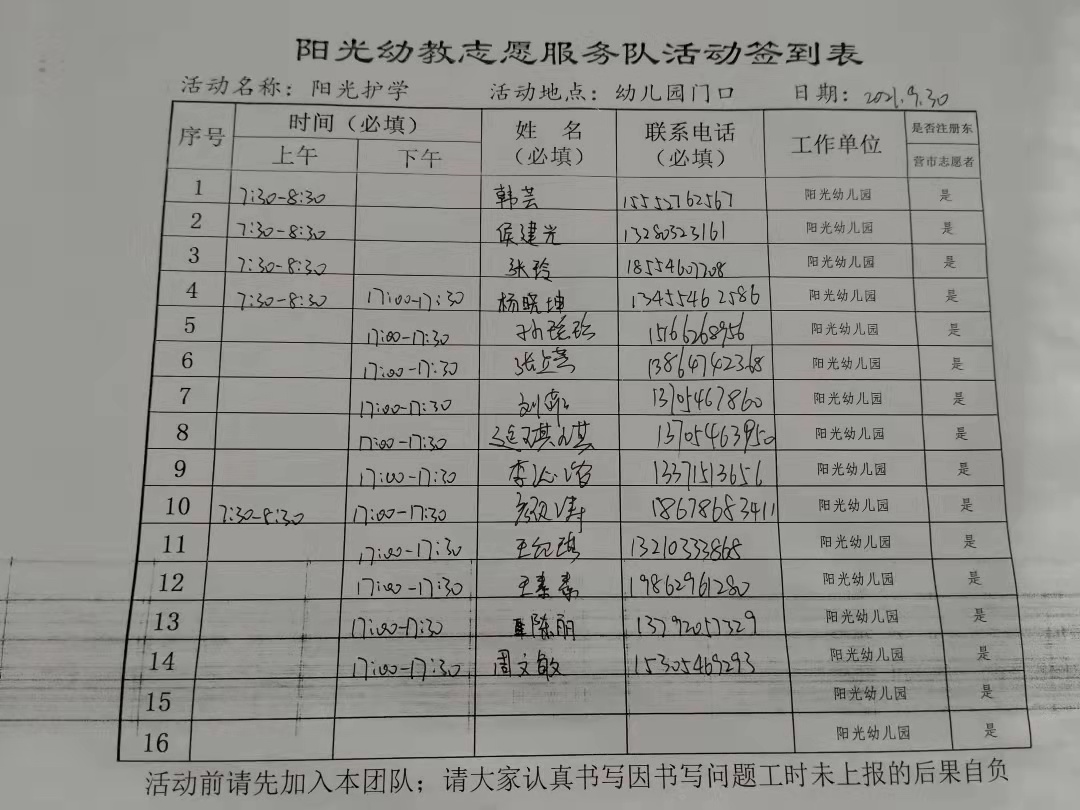 阳光幼教志愿服务队活动签到表
活动名称：阳光护学 活动地点：幼儿园门口 日期：2021.9.30
序号 时间（必填） 姓 名（必填） 联系电话（必填） 工作单位 是否注册东营市志愿者
上午 下午
1 7:30-8:30 韩芸 15552762567 阳光幼儿园 是
2 7:30-8:30 侯建光 13280323161 阳光幼儿园 是
3 7:30-8:30 张玲 18554607708 阳光幼儿园 是
4 7:30-8:30 17:00-17:30 杨晓坤 13455462586 阳光幼儿园 是
5 17:00-17:30 15166268956 阳光幼儿园 是
6 17:00-17:30 13864742368 阳光幼儿园 是
7 17:00-17:30 13705467860 阳光幼儿园 是
8 17:00-17:30 13705463950 阳光幼儿园 是
9 17:00-17:30 13371513656 阳光幼儿园 是
10 7:30-8:30 17:00-17:30 18678683411 阳光幼儿园 是
11 17:00-17:30 13210333868 阳光幼儿园 是
12 17:00-17:30 王素素 19862961280 阳光幼儿园 是
13 17:00-17:30 陈丽 13792057329 阳光幼儿园 是
14 17:00-17:30 周文敏 15305469293 阳光幼儿园 是
15 阳光幼儿园 是
16 阳光幼儿园 是
活动前请先加入本团队；请大家认真书写因书写问题工时未上报的后果自负